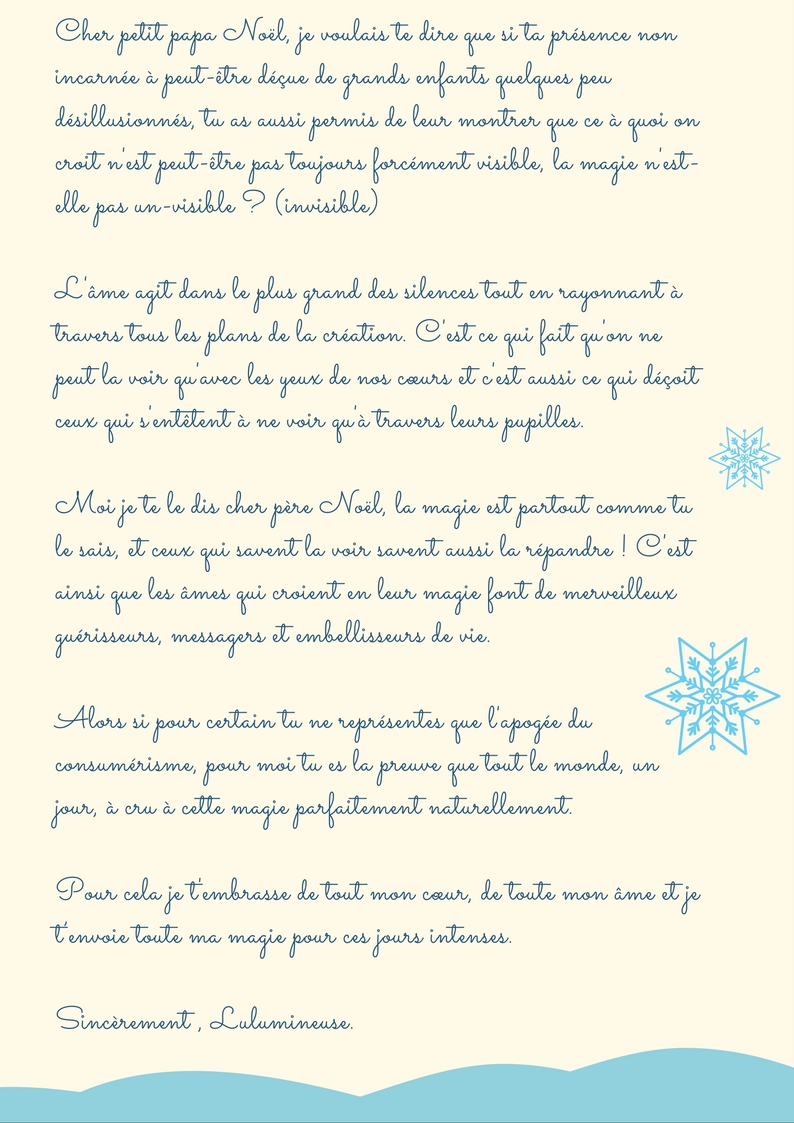 Cher petit papa Noël, je voulais te dire que si ta présence non
incarnée à peut-être déçue de grands enfants quelques peu
désillusionnés, tu as aussi permis de leur montrer que ce à quoi on
croit n'est peut-être pas toujours forcément visible, la magie n'est-
elle pas un-visible ? (invisible)
L'âme agit dans le plus grand des silences tout en rayonnant à
travers tous les plans de la création. C'est ce qui fait qu'on ne
peut la voir qu'avec les yeux de nos cœurs et c'est aussi ce qui déçoit
ceux qui s'entêtent à ne voir qu'à travers leurs pupilles.
Moi je te le dis cher père Noël, la magie est partout comme tu
le sais, et ceux qui savent la voir savent aussi la répandre ! C'est
ainsi que les âmes qui croient en leur magie font de merveilleux
guérisseurs, messagers et embellisseurs de vie.
Alors si pour certain tu ne représentes que l'apogée du
consumérisme, pour moi tu es la preuve que tout le monde, un
jour, à cru à cette magie parfaitement naturellement.
Pour cela je t'embrasse de tout mon cœur, de toute mon âme et je
t'envoie toute ma magie pour ces jours intenses.
Sincèrement , Lulumineuse.